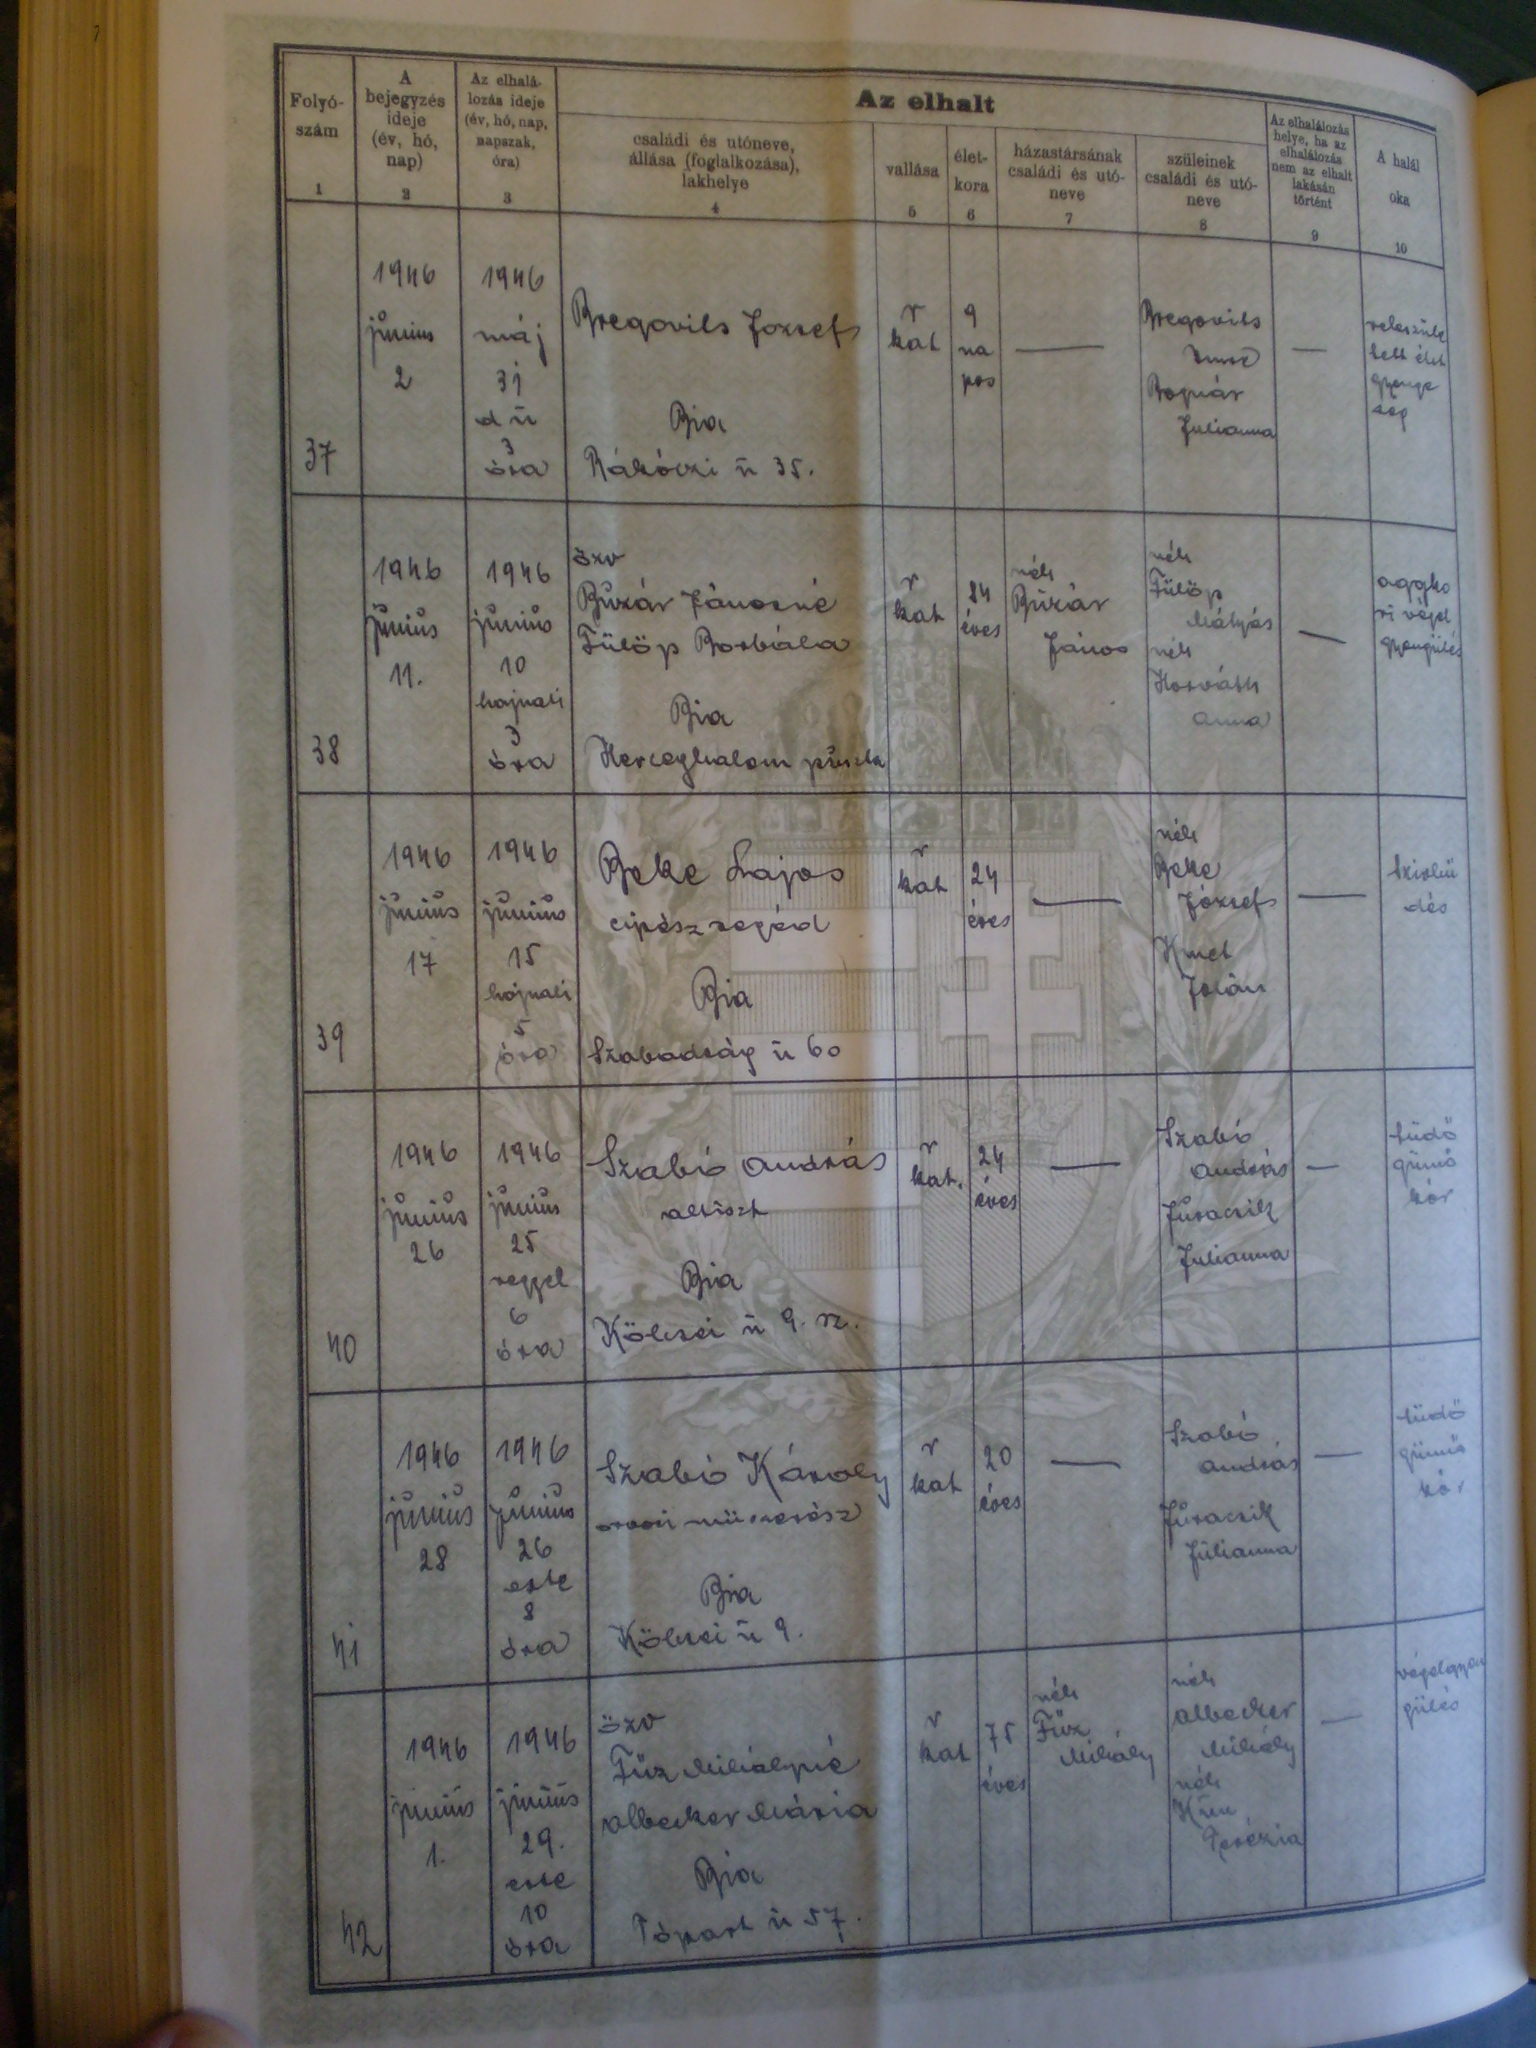 Az elhalt
Folyó-
szám
1
A
bejegyzés
ideje
(év, hó,
nap)
2
Az elhalá-
lozás ideje
(év, hó, nap,
napszak,
óra)
3
családi és utóneve,
állása (foglalkozása),
lakhelye
4
vallása
5
élet-
kora
6
házastársának
családi és utó-
neve
7
szüleinek
családi és utó-
neve
8
Az elhalálozás
helye, ha az
elhalálozás
nem az elhalt
lakásán
történt
9
A halál
oka
10
37
1946
június
2
1946
máj
31
d u
3
óra
Bregovits József
Bia
Rákóczi u 35.
r
kat
9
na
pos
Bregovits
Bognár
Julianna
veleszüle
tett élet
gyenge
ség
38
1946
június
11.
1946
június
10
hajnali
3
óra
özv
Buzár Jánosné
Fülöp Borbála
Bia
Herceghalom puszta
r
kat
84
éves
néh
Buzár
János
néh
Fülöp
Mátyás
néh
Horváth
Anna
aggko
ri végel
gyengülés
39
1946
június
17
1946
június
15
hajnali
5
óra
Beke Lajos
cipész segéd
Bia
Szabadság u 60
r
kat
24
éves
néh
Beke
József
Kmet
Jolán
Szivhű
dés
40
1946
június
26
1946
június
25
reggel
6
óra
Szabó András
altiszt
Bia
Kölcsei u 9. sz.
r
kat.
24
éves
Szabó
András
Juracsik
Julianna
tüdő
gümő
kór
41
1946
június
28
1946
június
26
este
8
óra
Szabó Károly
orvosi müszerész
Bia
Kölcsei u 9.
r
kat
20
éves
Szabó
András
Juracsik
Julianna
tüdő
gümő
kór
42
1946
június
1.
1946
június
29.
este
10
óra
özv
Füz Mihályné
Albecker Mária
Bia
Tópart u 57.
r
kat
75
éves
néh
Füz
Mihály
néh
Albecker
Mihály
néh
Terézia
végelgyen
gülés